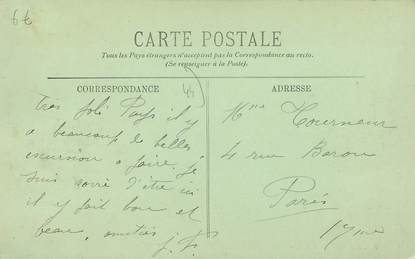 66
CARTE POSTALE
Tous les Pays étrangers n'acceptent pas la Correspondance au recto.
(Se renseigner à la Poste).
CORRESPONDANCE
Très joli Pays il y
a beaucoup de belles
excursion a faire. je
suis ravie d'être ici
il y fait bon et
beau, amitiés J. P.
ADRESSE
Mme Tourneur
4 rue Baron
Paris
17me